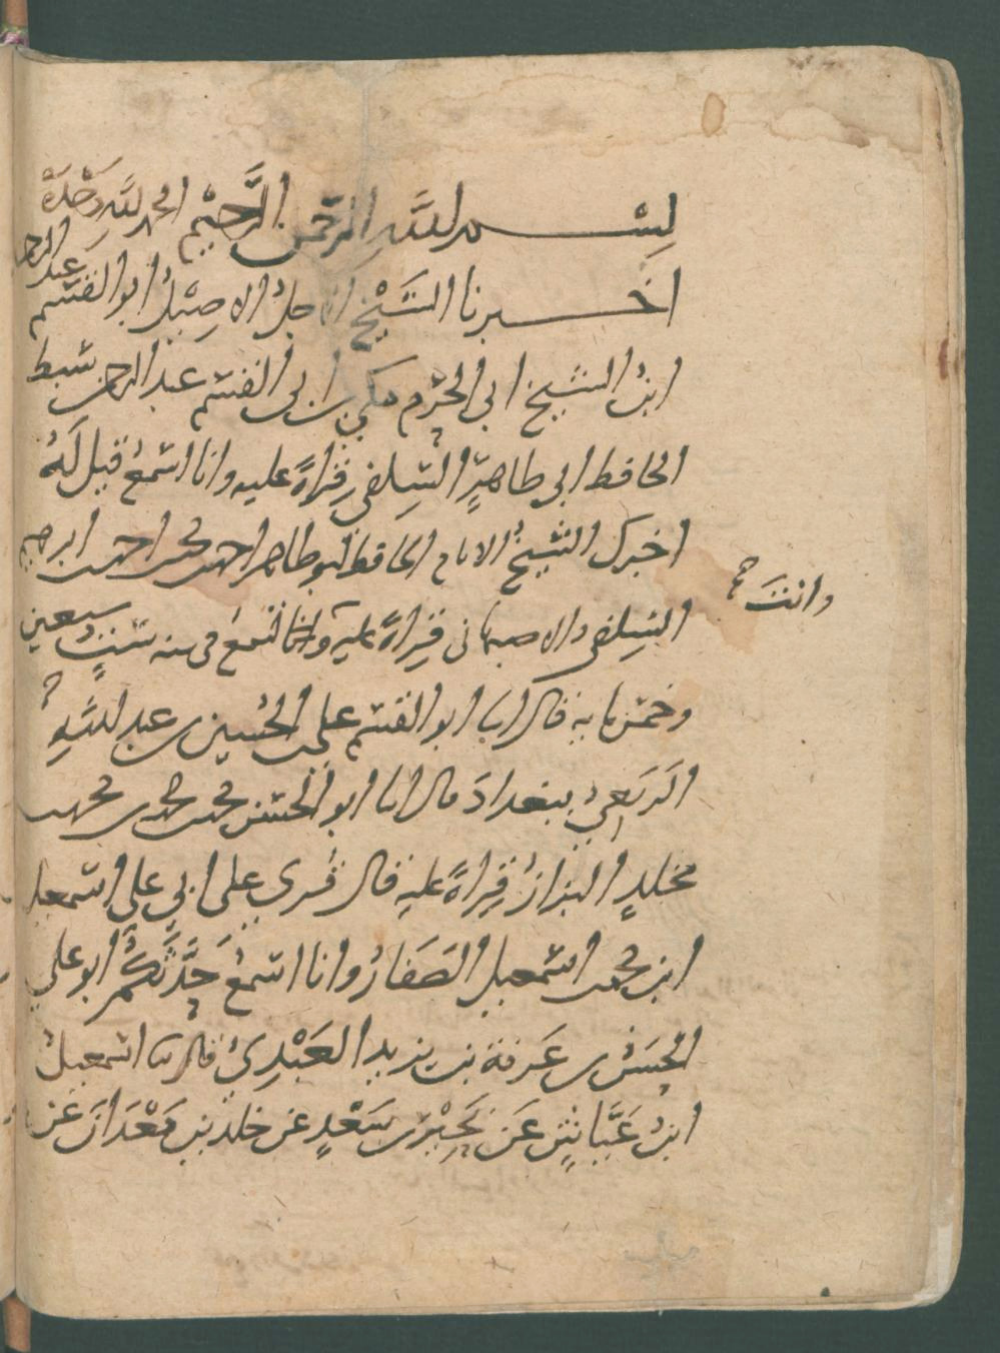 بسم الله الرحمن الرحيم الحمد لله وحده
اخبرنا الشيخ الاجل الاصيل ابو القسم عبد الرحمن
ابن الشيخ ابي الحرم مكي بن ابي القسم عبد الرحمن سبط
الحافظ ابي طاهر السلفي قراءةً عليه وانا اسمع قيل له
اخبرك الشيخ الامام الحافظ ابو طاهر احمد بن محمد بن احمد بن ابرهيم
السلفي الاصبهاني قراءةً عليه وانت تسمع في سنه ست وسبعين
وانت صح
وخمس مايه قال انا ابو القسم علي بن الحسين بن عبد الله
الربعي ببغداد قال انا ابو الحسن محمد بن محمد بن محمد بن
مخلدٍ البزاز قراءةً عليه قال قرى على ابي علي اسمعيل
ابن محمد بن اسمعيل الصفار وانا اسمع حدثكم ابو علي
الحسن بن عرفة بن يزيد العبدي قال ثنا اسمعيل
ابن عياش عن بحير بن سعدٍ عن خلد بن معدان عن